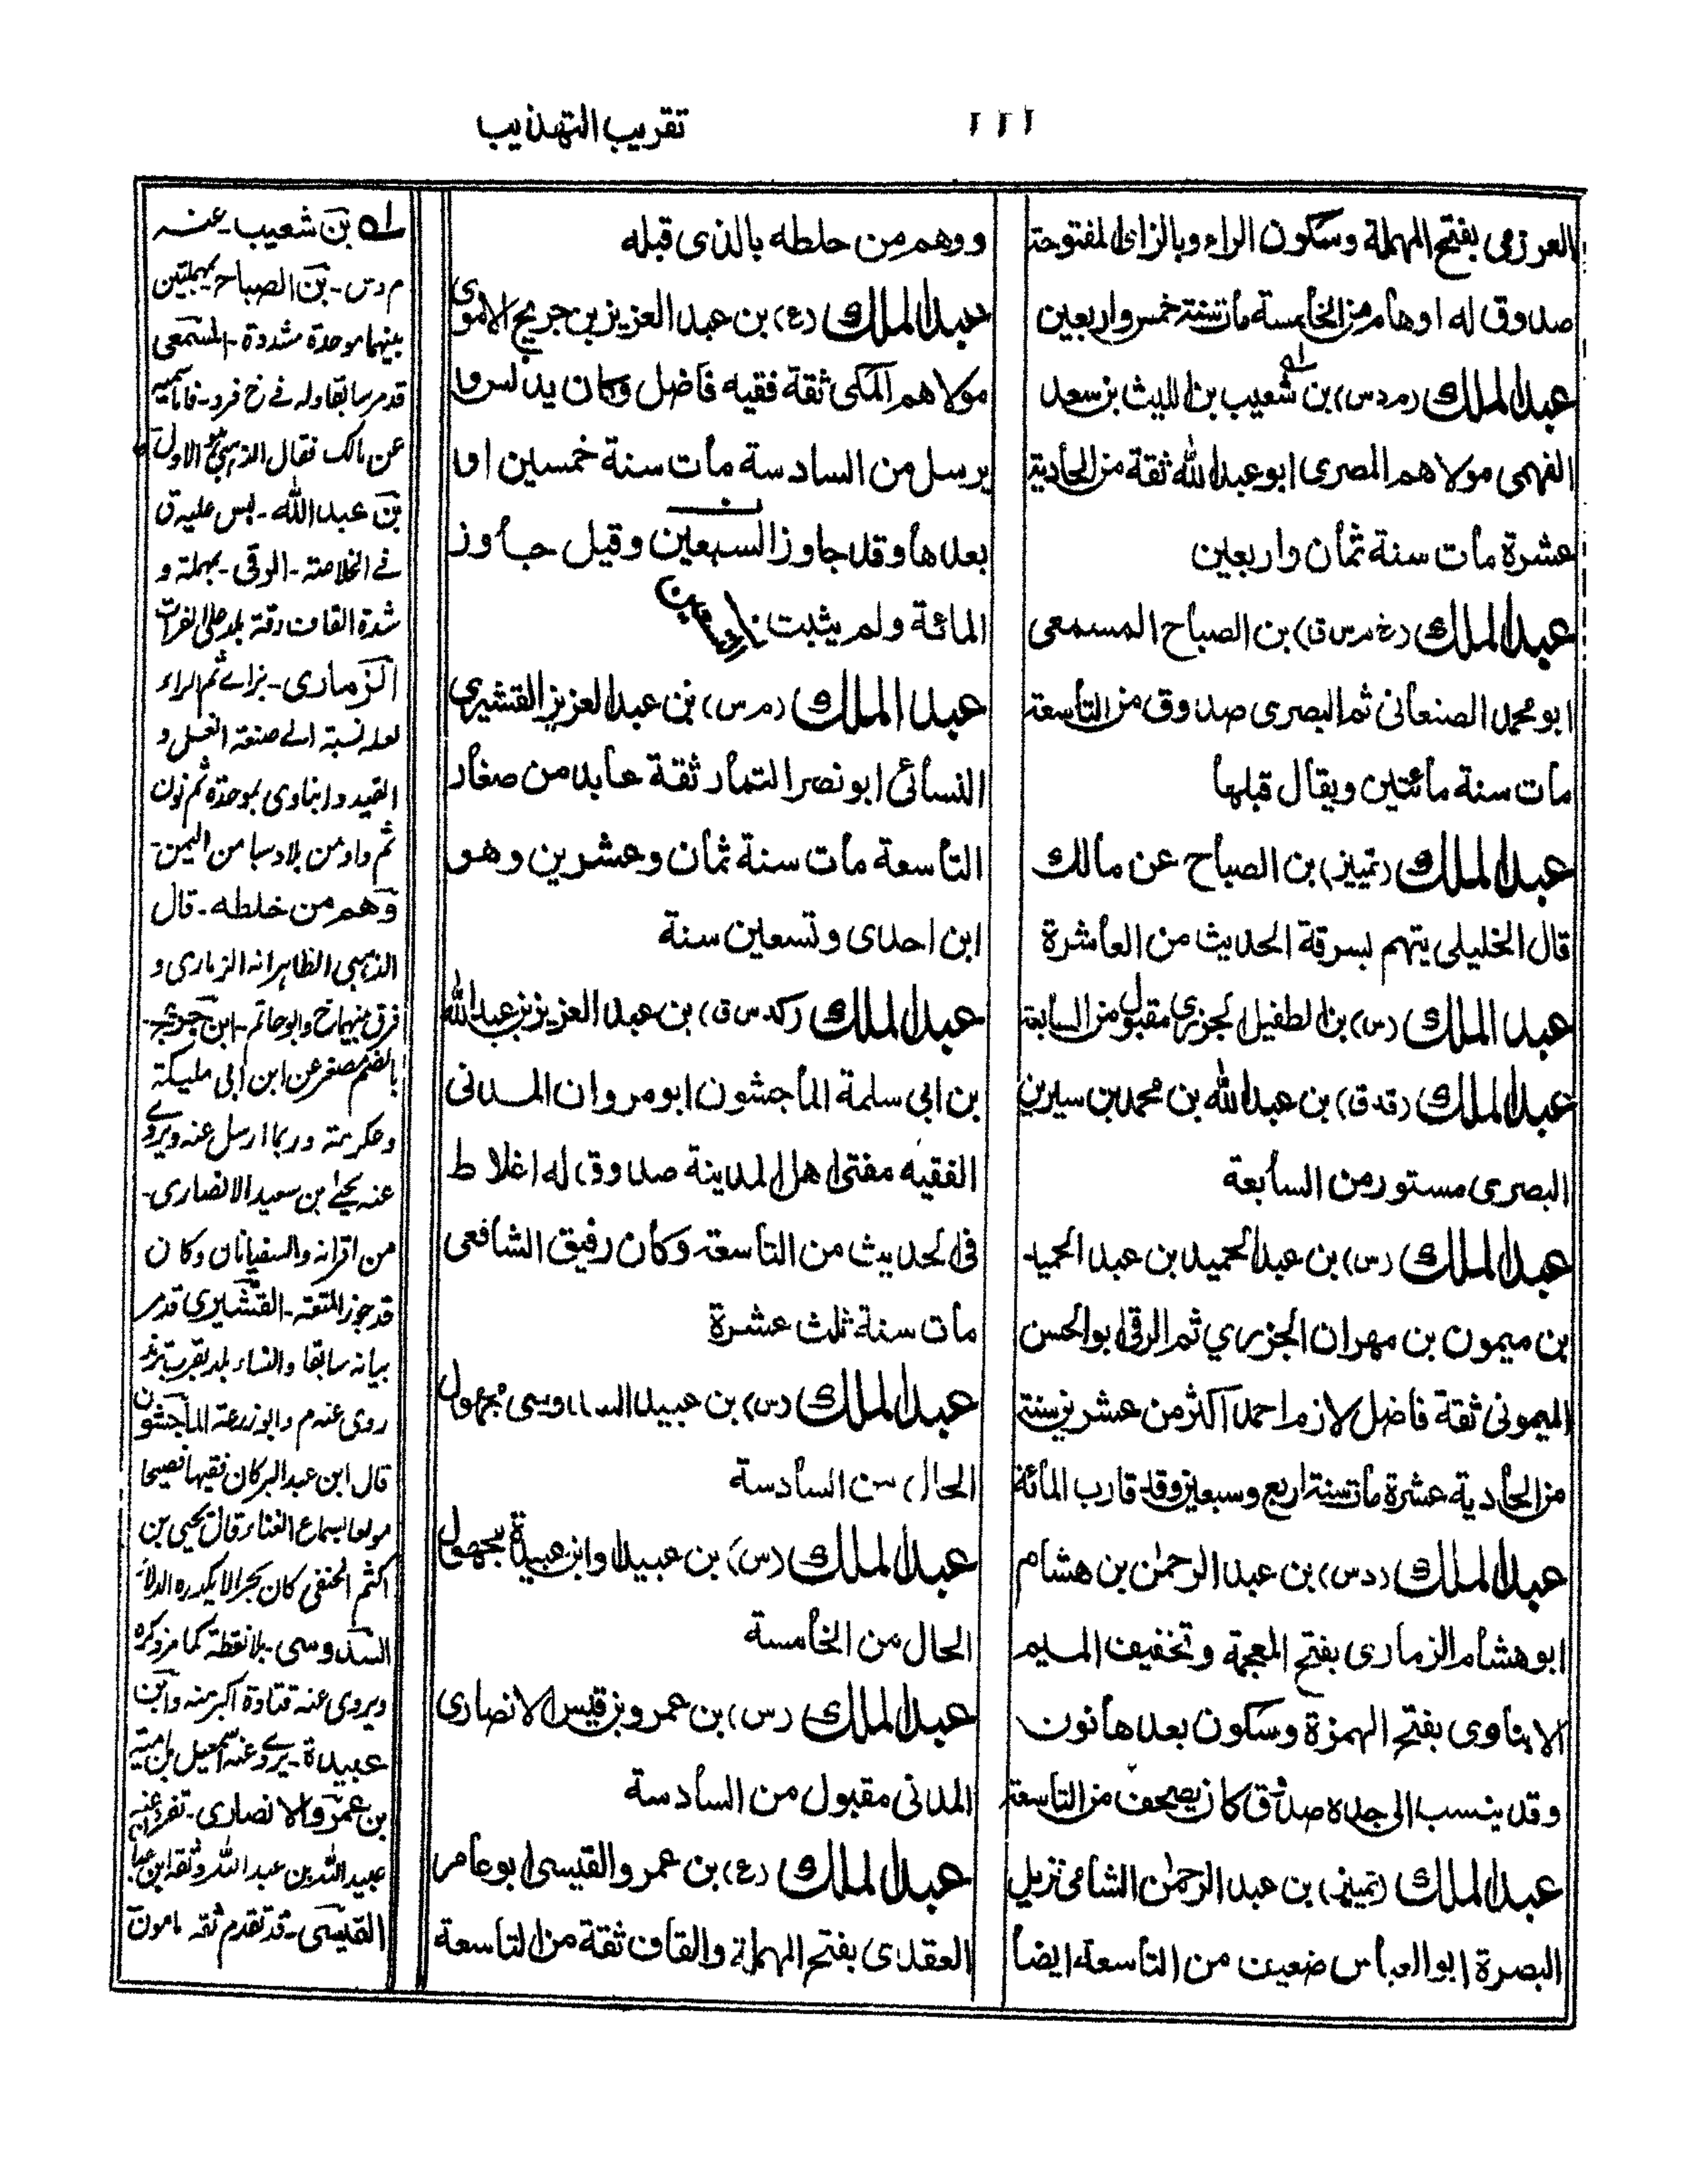 تقريب التهذيب
العرزمى بفتح المهملة وسكون الراء وبالزاى المفتوحة
صدوق له اوهام من الخامسة مات سنة خمس واربعين
عبد الملك (م د س) بن شعيب بن الليث بن سعد
الفهمى مولاهم المصرى ابو عبد الله ثقة من الحادية
عشرة مات سنة ثمان واربعين
عبد الملك (خ م س ق) بن الصباح المسمعى
ابو محمد الصنعانى ثم البصرى صدوق من التاسعة
مات سنة مائتين ويقال قبلها
عبد الملك (تمييز) بن الصباح عن مالك
قال الخليلى يتهم بسرقة الحديث من العاشرة
عبد الملك (س) بن الطفيل الجزرى مقبول من السابعة
عبد الملك (قد ق) بن عبد الله بن محمد بن سيرين
البصرى مستور من السابعة
عبد الملك (س) بن عبد الحميد بن عبد الحميد
بن ميمون بن مهران الجزري ثم الرقى ابو الحسن
الميمونى ثقة فاضل لازم احمد اكثر من عشرين سنة
من الحادية عشرة مات سنة اربع وسبعين وقد قارب المائة
عبد الملك (د س) بن عبد الرحمٰن بن هشام
ابو هشام الزمارى بفتح المعجمة وتخفيف الميم
الابناوى بفتح الهمزة وسكون بعدها نون
وقد ينسب الى جده صدوق كان يصحف من التاسعة
عبد الملك (تمييز) بن عبد الرحمٰن الشامى نزيل
البصرة ابو العباس ضعيف من التاسعة ايضا
ووهم من خلطه بالذى قبله
عبد الملك (ع) بن عبد العزيز بن جريج الاموى
مولاهم المكى ثقة فقيه فاضل وكان يدلس و
يرسل من السادسة مات سنة خمسين او
بعدها وقد جاوز السبعين وقيل جاوز
المائة ولم يثبت
عبد الملك (م س) بن عبد العزيز القشيرى
النسائى ابو نصر التمار ثقة عابد من صغار
التاسعة مات سنة ثمان وعشرين وهو
ابن احدى وتسعين سنة
عبد الملك (كد س ق) بن عبد العزيز بن عبد الله
بن ابى سلمة الماجشون ابو مروان المدنى
الفقيه مفتى اهل المدينة صدوق له اغلاط
فى الحديث من التاسعة وكان رفيق الشافعى
مات سنة ثلث عشرة
عبد الملك (س) بن عبيد السدوسى مجهول
الحال من السادسة
عبد الملك (س) بن عبيد او ابن عبيدة مجهول
الحال من الخامسة
عبد الملك (س) بن عمرو بن قيس الانصارى
المدنى مقبول من السادسة
عبد الملك (ع) بن عمرو القيسى ابو عامر
العقدى بفتح المهملة والقاف ثقة من التاسعة
بن شعيب - عنه
م د س - بن الصباح بمهملتين
بينهما موحدة مشددة - المسمعى
قدم سابقا وله فى خ فرد -
عن مالك فقال الذهبى هو الاول
بن عبد الله - ليس عليه ق
فے الخلاصة - الرقى - بمهملة و
شدة القاف رقة بلد على الفرات
الزمارى - بزاے ثم الراء
لعله نسبة الے صنعة العسل و
القيد وابناوى بموحدة ثم نون
ثم واو من بلاد سبا من اليمن -
وهم من خلطه - قال
الذهبى الظاهر انه الزمارى و
فرق بينهما خ وابو حاتم - ابن جريج -
بالضم مصغر عن ابن ابى مليكة
وعكرمة وربما ارسل عنه ويروے
عنه يحيٰے بن سعيد الانصارى -
من اقرانه والسفيانان وكان
قد جوز المتعة - القشيرى قدم
بيانه سابقا والنساء بلد بقرب
روى عنه م وابو زرعة الماجشون
قال ابن عبد البر كان فقيها فصيحا
مولعا بسماع الغناء قال يحيى بن
اكثم الحنفى كان بحرا لا يكدره الدلاء
السدوسى - بلا نقطة كما مر ذكره
ويروى عنه قتادة اكبر منه وابن
عبيدة - يروے عنه اسمعيل بن امية
بن عمرو الانصارى - تفرد عنه
عبيد الله بن عبد الله وثقه ابن حبان
القيسى - قد تقدم ثقه مامون